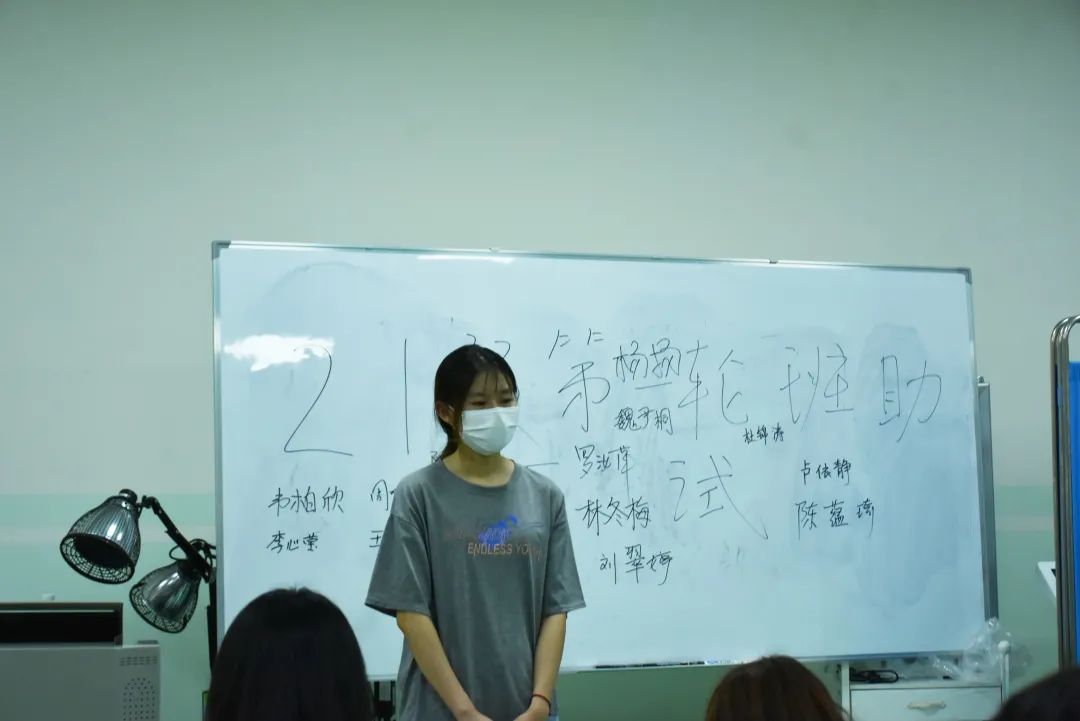 21 第一轮班助
试
杨
魏子桐
杜锦涛
罗
卢依静
韦柏欣 周
林冬梅
陈蕴琦
李心莹 王
刘翠婷
ENDLESS YO